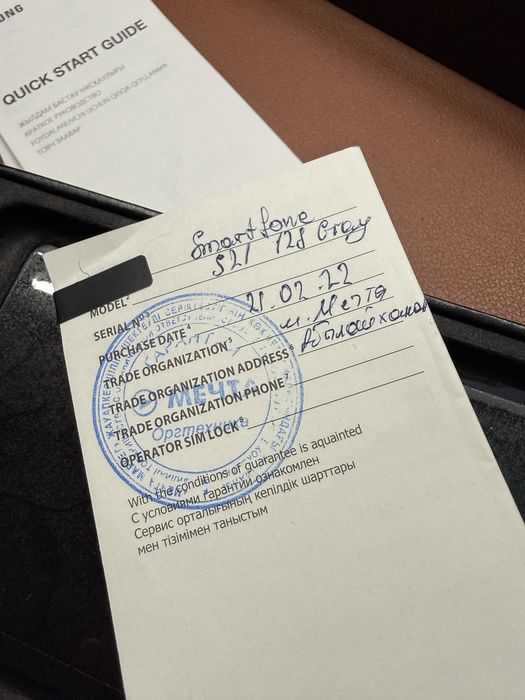 UNG
QUICK START GUIDE
ЖЫЛДАМ БАСТАУ НҰСҚАУЛЫҒЫ
КРАТКОЕ РУКОВОДСТВО
FOYDALANUVCHI UCHUN QISQA QO'LLANMA
ТОВЧ ЗААВАР
Smartfone
S21 128 Gray
MODEL²
SERIAL No³
PURCHASE DATE⁴ 21.02.22
TRADE ORGANIZATION⁵ м. Мечта
TRADE ORGANIZATION ADDRESS⁶ Абылайхана
TRADE ORGANIZATION PHONE⁷
OPERATOR SIM LOCK⁸
МЕЧТА
Оргтехника
With the conditions of guarantee is aquainted
С условиями гарантии ознакомлен
Сервис орталығының кепілдік шарттары
мен тізімімен таныстым